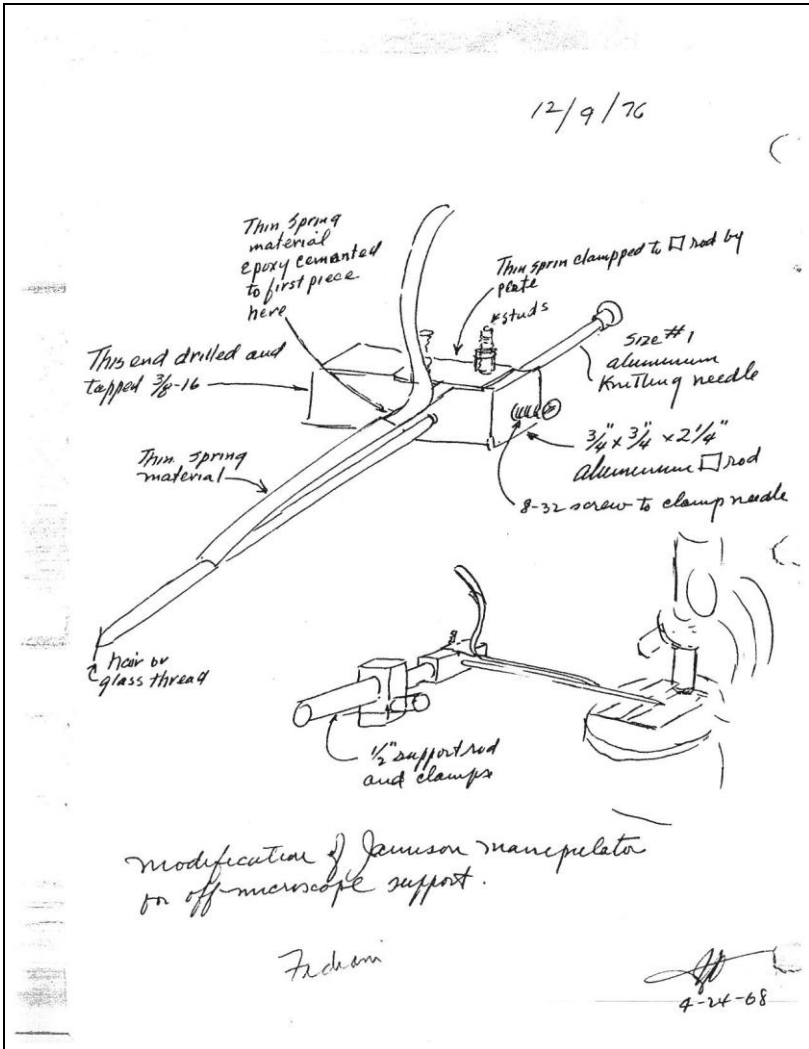 12/9/76
Thin spring
material
Epoxy cemented
to first piece
here
Thin sprin clampped to □ rod by
plate
studs
Size #1
aluminum
Knitting needle
This end drilled and
tapped 3/8-16
3/4" x 3/4" x 2 1/4"
aluminum □ rod
8-32 screw to clamp needle
Thin spring
material
hair or
glass thread
1/2" support rod
and clamps
modification of Jamison manipulator
for off-microscope support.
4-24-68